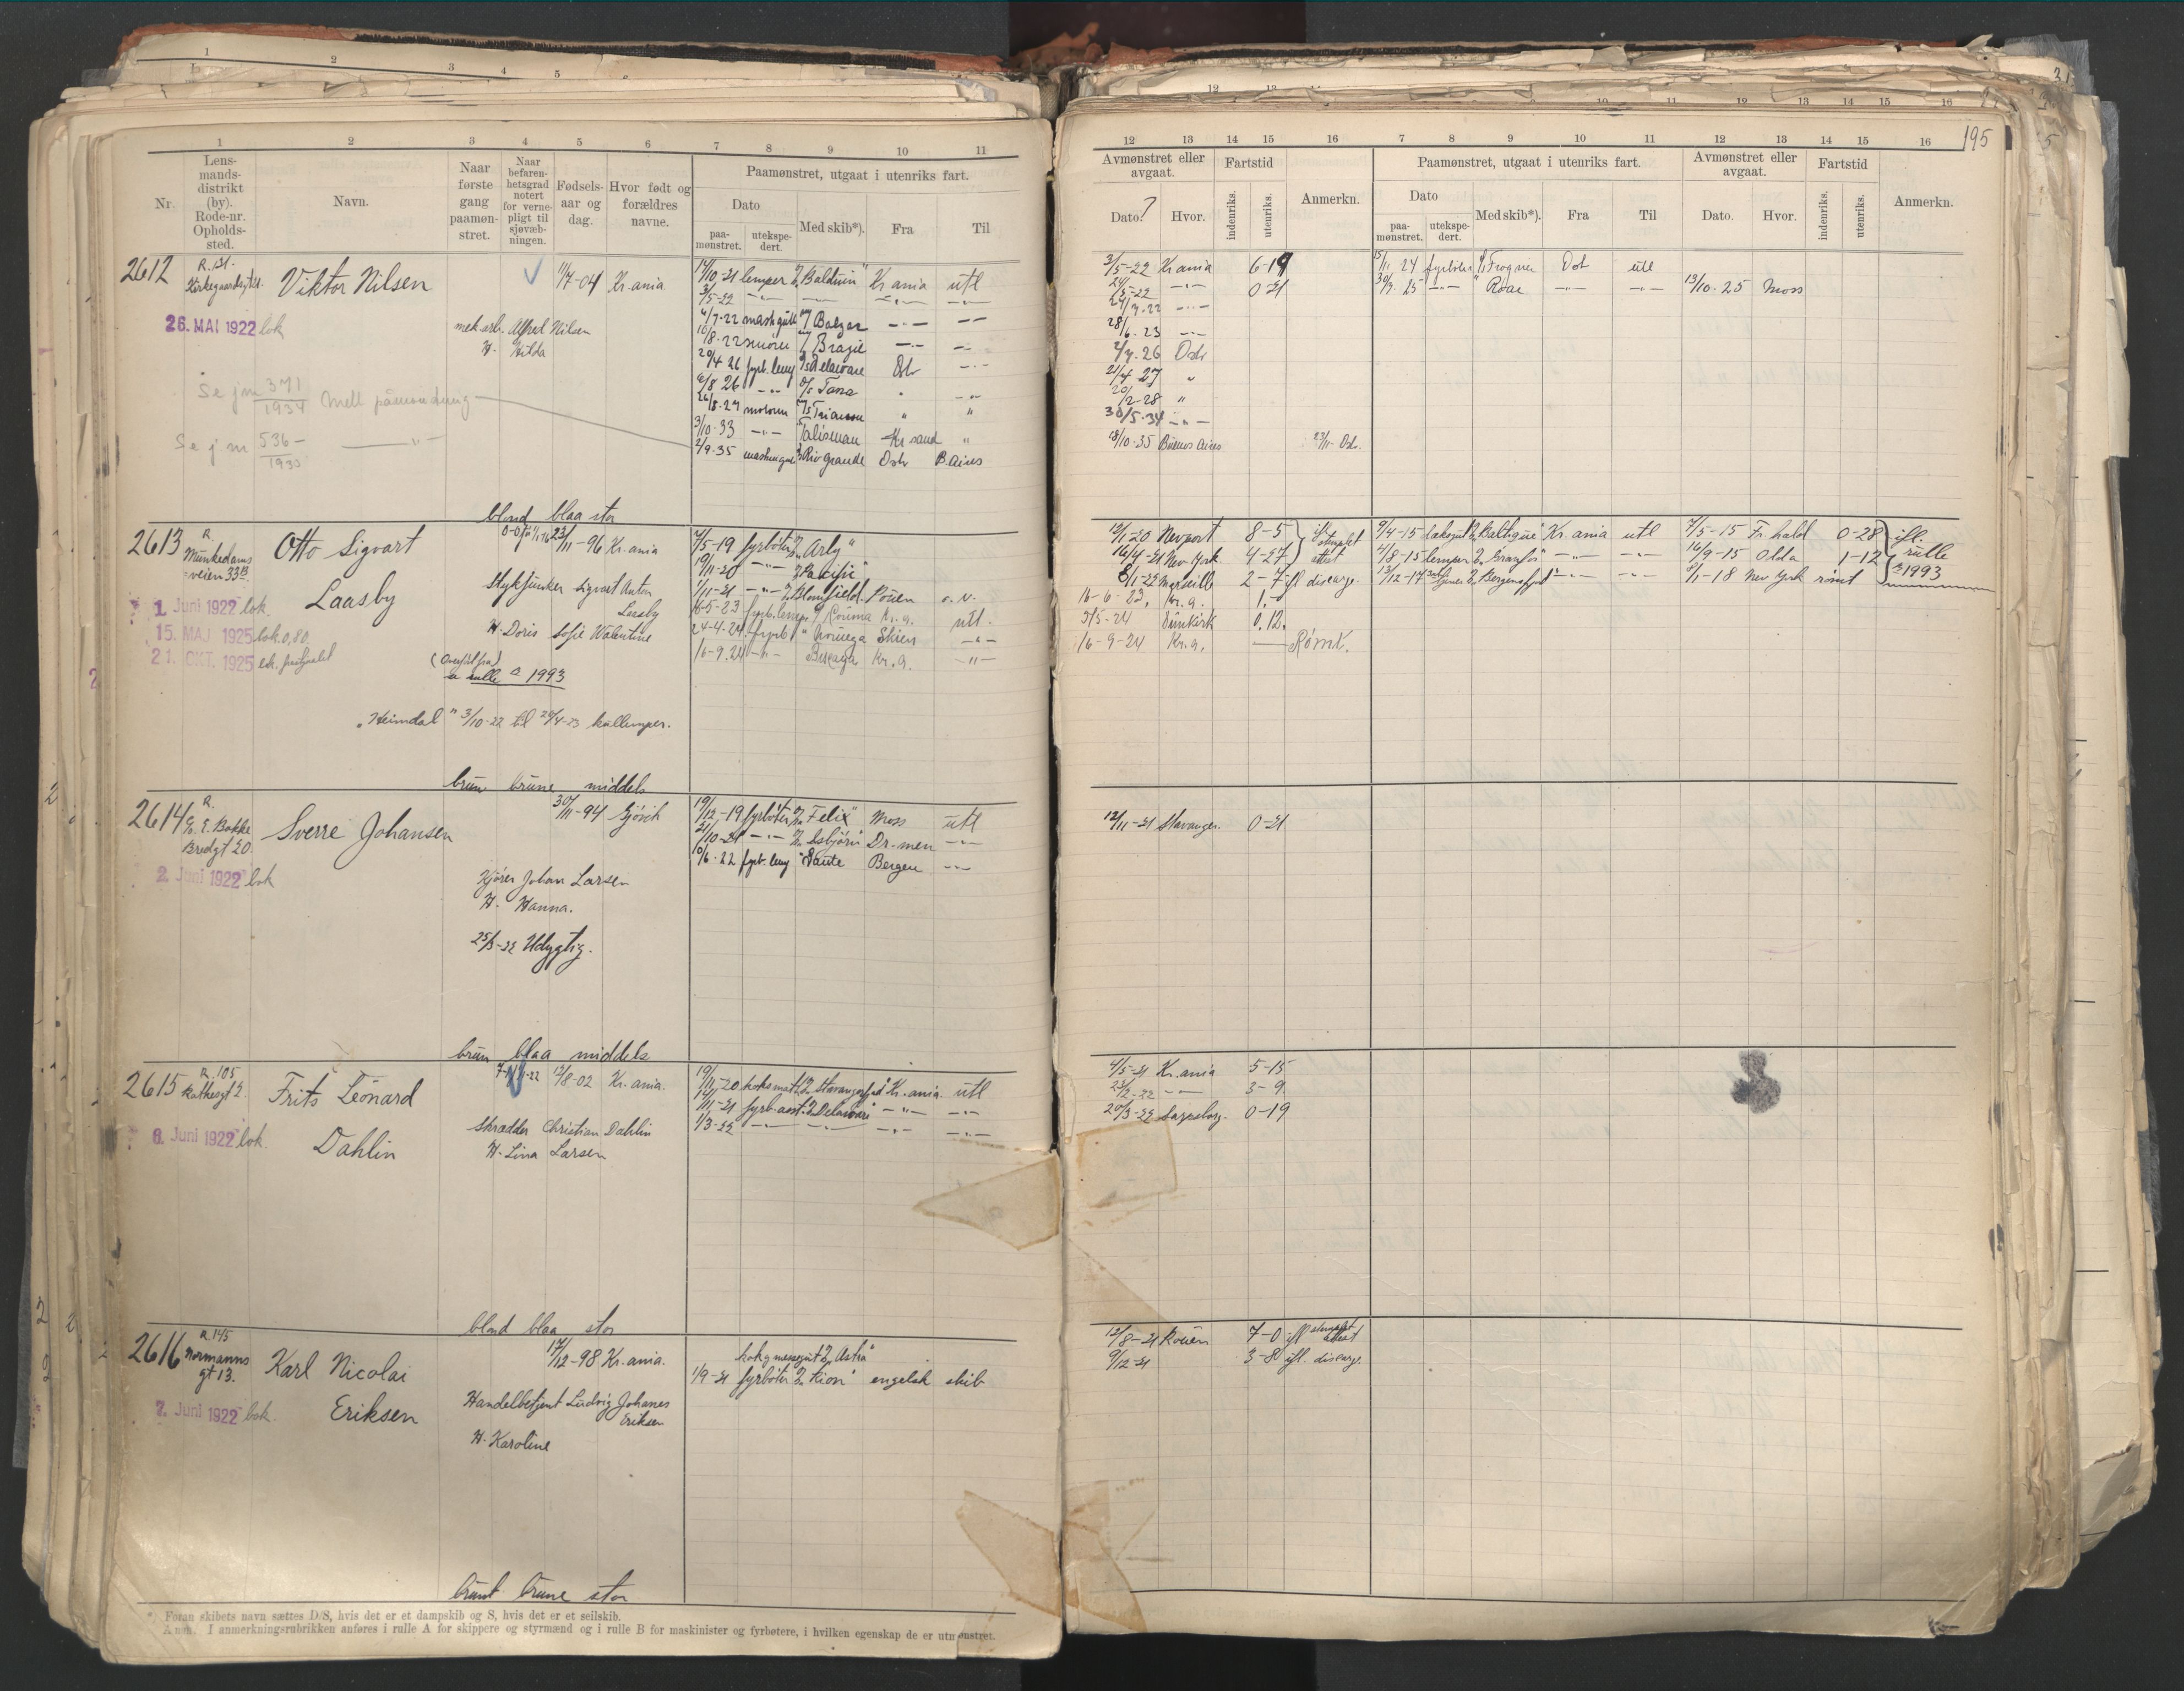 195
1 2 3 4 5 6 7 8 9 10 11
Nr.
Lens-
mands-
distrikt
(by).
Rode-nr.
Opholds-
sted.
Navn.
Naar
første
gang
paamøn-
stret.
Naar
befaren-
hetsgrad
notert
for verne-
pligt til
sjøvæb-
ningen.
Fødsels-
aar og
dag.
Hvor født og
forældres
navne.
Paamønstret, utgaat i utenriks fart.
Dato
paa-
mønstret.
utekspe-
dert.
Med skib*).
Fra
Til
2612 R. 131. Viktor Nilsen 1/7-04 Kr.ania
26. MAI 1922 bok
mek.arb. Alfred Nilsen
H. Hilda
14/10-21 lemper "Balduin" Kr ania utl
3/5-22 -"- -"- -"- -"-
4/7-22
10/8-22 smører
20/4 26 fyrb. lemp Delaware Osl -"-
6/8 26 -"- D/S Tana
26/8-27 motorm
3/10-33 -"- Talisman Kr sand "
2/9-35 Rio Grande Oslo B.Aires
Se j nr 371/1934 mell påmønstring
Se j nr 536/1935 -"-
blond blaa stor
2613 R. Munkedams veien 33B. Otto Sigvart Laasby 23/11-96 Kr.ania
1. Juni 1922 bok.
15. MAI 1925 bok 0,80
21. OKT. 1925
Sigvart Anton
Laasby
H. Doris Sofie Valentine
(Overført fra)
rulle a 1993
"Heimdal" 3/10-22 til 20/4-23 kullemper.
4/5-19 fyrbøter "Arly"
19/11-20 -"- "Pacific"
1/11-21 -"- Blomfield Rouen a. N.
16-5-23 fyrb.lemp. Kr.a. utl.
24-4-24 fyrb. Noruega Skien -"-
16-9.24 -"- Kr.a. -"-
brun brune middels
2614 R. c/o E. Bakke Bredgt 20. Sverre Johansen 30/11-94 Gjøvik
2. Juni 1922 bok
Kjører Johan Larsen
H. Hanna.
25/3-22 Udygtig.
19/12-19 fyrbøter "Felix" Moss utl
21/10-21 -"- "Asbjørn" Dr-men -"-
10/6-22 fyrb.lemp Bergen -"-
brun blaa middels
2615 R. 105 Rathkesgt 2. Frits Leonard Dahlin 12/8-02 Kr.ania.
6. Juni 1922 bok.
Skrædder Christian Dahlin
H. Lina Larsen
19/11-20 koksmat "Stavangerfjord" Kr.ania. utl
14/11-21 fyrb.asst. "Delaware" -"- -"-
1/3-22 -"- -"- -"- -"-
blond blaa stor
2616 R 145 Normanns gt 13. Karl Nicolai Eriksen 17/12-98 Kr.ania.
7. Juni 1922 bok
Handelbetjent Ludvig Johanes
Eriksen
H. Karoline
kok og messegut "Astra"
1/9-21 fyrbøter "Kion" engelsk skib
brunt brune stor
*) Foran skibets navn sættes D/S, hvis det er et dampskib og S, hvis det er et seilskib.
Anm. I anmerkningsrubrikken anføres i rulle A for skippere og styrmænd og i rulle B for maskinister og fyrbøtere, i hvilken egenskap de er utmønstret.
12 13 14 15 16 7 8 9 10 11 12 13 14 15 16
Avmønstret eller
avgaat.
Dato. ?
Hvor.
Fartstid
indenriks.
utenriks.
Anmerkn.
Paamønstret, utgaat i utenriks fart.
Dato
paa-
mønstret.
utekspe-
dert.
Med skib*).
Fra
Til
Avmønstret eller
avgaat.
Dato.
Hvor.
Fartstid
indenriks.
utenriks.
Anmerkn.
3/5-22 Kr ania 6-19 15/11 24 fyrbøter Frogner Osl utl
24/5-22 -"- 0-21 30/9 25 -"- "Roar -"- -"- 13/10-25 Moss
24/7-22 -"-
28/6. 23 -"-
2/7. 26 Oslo
21/4 27 "
20/2-28 "
30/5-34 -"-
18/10-35 Buenos Aires 23/11- Osl.
12/1-20 Newport 8-5 ifl. stemplet attest 9/4-15 "Baltique" Kr.ania utl 7/5-15 Fr.hald 0-28 ifl. rulle a 1993
16/4-21 New York 4-27 4/8-15 lemper "Granfos" -"- -"- 16/9-15 Odda 1-12
8/1-22 Marseille 2-7 ifl discarge. 13/12-17 "Bergensfjord" -"- -"- 8/1-18 New York rømt
16-6-23. Kr.a. 1.-
5/5-24 Dunkirk 0.12.
16-9-24 Kr.a. Rømt.
12/11-21 Stavanger. 0-21
4/5-21 Kr.ania 5-15
23/2-22 -"- 3-9
20/3-22 Sarpsborg. 0-19
12/8-21 Rouen 7-0 ifl stemplet attest
9/12-21 3-8 ifl. discarge.